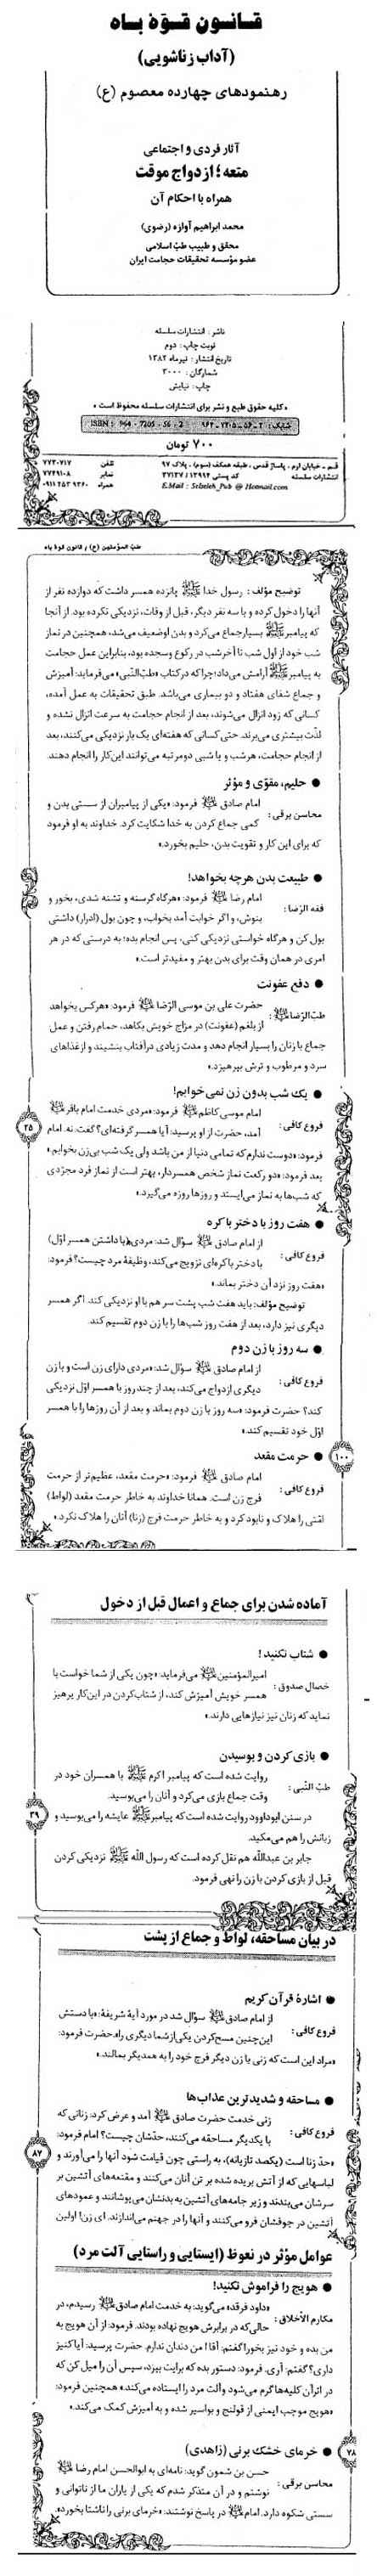 قانون قوّهٔ باه
(آداب زناشویی)
رهنمودهای چهارده معصوم (ع)
آثار فردی و اجتماعی
متعه؛ ازدواج موقت
همراه با احکام آن
محمد ابراهیم آوازه (رضوی)
محقق و طبیب طبّ اسلامی
عضو مؤسسه تحقیقات حجامت ایران
ناشر : انتشارات سلسله
نوبت چاپ : دوم
تاریخ انتشار : تیرماه ۱۳۸۲
شمارگان : ۳۰۰۰
چاپ : نیایش
« کلیه حقوق طبع و نشر برای انتشارات سلسله محفوظ است »
شابک : ۲ - ۵۶ - ۷۲۰۵ - ۹۶۴ ISBN : 964 - 7205 - 56 - 2
۷۰۰ تومان
قم - خیابان ارم - پاساژ قدس - طبقه همکف (سوم) - پلاک ۹۷ تلفن
انتشارات سلسله کد پستی نمابر
E.Mail : Selseleh_Pub @ Hotmail.com همراه
طبّ المؤمنین (ع) / قانون قوهٔ باه
توضیح مؤلف : رسول خدا ﷺ پانزده همسر داشت که دوازده نفر از
آنها را دخول کرده و با سه نفر دیگر، قبل از وفات، نزدیکی نکرده بود. از آنجا
که پیامبر ﷺ بسیار جماع می‌کرد و بدن او ضعیف می‌شد، همچنین در نماز
شب خود از اول شب تا آخر شب در رکوع و سجده بود، بنابراین عمل حجامت
به پیامبر ﷺ آرامش می‌داد؛ چرا که در کتاب «طبّ‌النّبی» می‌فرماید: آمیزش
و جماع شفای هفتاد و دو بیماری می‌باشد. طبق تحقیقات به عمل آمده،
کسانی که زود انزال می‌شوند، بعد از انجام حجامت به سرعت انزال نشده و
لذت بیشتری می‌برند. حتی کسانی که هفته‌ای یک بار نزدیکی می‌کنند، بعد
از انجام حجامت، هر شب و یا شبی دو مرتبه می‌توانند این کار را انجام دهند.
● حلیم، مقوّی و مؤثر
محاسن برقی : امام صادق فرمود: «یکی از پیامبران از سستی بدن و
کمی جماع کردن به خدا شکایت کرد. خداوند به او فرمود
که برای این کار و تقویت بدن، حلیم بخورد.»
● طبیعت بدن هرچه بخواهد!
فقه الرّضا : امام رضا فرمود: «هرگاه گرسنه و تشنه شدی، بخور و
بنوش، و اگر خوابت آمد بخواب، و چون بول (ادرار) داشتی
بول کن و هرگاه خواستی نزدیکی کنی، پس انجام بده؛ به درستی که در هر
امری در همان وقت برای بدن بهتر و مفیدتر است.»
● دفع عفونت
طبّ‌الرّضا : حضرت علی بن موسی الرّضا فرمود: «هرکس بخواهد
از بلغم (عفونت) در مزاج خویش بکاهد، حمام رفتن و عمل
جماع با زنان را بسیار انجام دهد و مدت زیادی در آفتاب بنشیند و از غذاهای
سرد و مرطوب و ترش بپرهیزد.»
● یک شب بدون زن نمی‌خوابم!
فروع کافی : امام موسی کاظم فرمود: «مردی خدمت امام باقر
آمد، حضرت از او پرسید: آیا همسر گرفته‌ای؟ گفت: نه. امام
فرمود: «دوست ندارم که تمامی دنیا از من باشد ولی یک شب بی‌زن بخوابم.»
بعد فرمود: «دو رکعت نماز شخص همسردار، بهتر است از نماز فرد مجرّدی
که شب‌ها به نماز می‌ایستد و روزها روزه می‌گیرد.»
۲۵
● هفت روز با دختر باکره
فروع کافی : از امام صادق سؤال شد: مردی (با داشتن همسر اوّل)
با دختر باکره‌ای تزویج می‌کند، وظیفهٔ مرد چیست؟ فرمود:
«هفت روز نزد آن دختر بماند.»
توضیح مؤلف: باید هفت شب پشت سر هم با او نزدیکی کند. اگر همسر
دیگری نیز دارد، بعد از هفت روز شب‌ها را با زن دوم تقسیم کند.
● سه روز با زن دوم
فروع کافی : از امام صادق سؤال شد: «مردی دارای زن است و با زن
دیگری ازدواج می‌کند، بعد از چند روز با همسر اول نزدیکی
کند؟ حضرت فرمود: «سه روز با زن دوم بماند و بعد از آن روزها را با همسر
اوّل خود تقسیم کند.»
● حرمت مقعد
۱۰۰
فروع کافی : امام صادق فرمود: «حرمت مقعد، عظیم‌تر از حرمت
فرج زن است. همانا خداوند به خاطر حرمت مقعد (لواط)
امّتی را هلاک و نابود کرد و به خاطر حرمت فرج (زنا) آنان را هلاک نکرد.»
آماده شدن برای جماع و اعمال قبل از دخول
● شتاب نکنید !
خصال صدوق : امیرالمؤمنین می‌فرماید: «چون یکی از شما خواست با
همسر خویش آمیزش کند، از شتاب کردن در این کار پرهیز
نماید که زنان نیز نیازهایی دارند.»
● بازی کردن و بوسیدن
طبّ النّبی : روایت شده است که پیامبر اکرم ﷺ با همسران خود در
وقت جماع بازی می‌کرد و آنان را می‌بوسید.
۳۹
در سنن ابوداوود روایت شده است که پیامبر ﷺ عایشه را می‌بوسید و
زبانش را هم می‌مکید.
جابر بن عبدالله هم نقل کرده است که رسول الله ﷺ نزدیکی کردن
قبل از بازی کردن با زن را نهی فرمود.
در بیان مساحقه، لواط و جماع از پشت
● اشارهٔ قرآن کریم
فروع کافی : از امام صادق سؤال شد در مورد آیهٔ شریفهٔ: «با دستش
این چنین مسح کردن یکی از شما دیگری را». حضرت فرمود:
«مراد این است که زنی با زن دیگر فرج خود را به همدیگر بمالند.»
● مساحقه و شدیدترین عذاب‌ها
فروع کافی : زنی خدمت حضرت صادق آمد و عرض کرد: زنانی که
با یکدیگر مساحقه می‌کنند، حدّشان چیست؟ امام فرمود:
۸۷
«حدّ زنا است (یکصد تازیانه)، به راستی چون قیامت شود آنها را می‌آورند و
لباسهایی که از آتش بریده شده بر تن آنان می‌کنند و مقنعه‌های آتشین بر
سرشان می‌بندند و زیر جامه‌های آتشین به بدنشان می‌پوشانند و عمودهای
آتشین در جوفشان فرو می‌کنند و آنها را در جهنم می‌اندازند. ای زن! اولین
عوامل مؤثر در نعوظ (ایستایی و راستایی آلت مرد)
● هویج را فراموش نکنید!
مکارم الأخلاق : «داود فرقد» می‌گوید: به خدمت امام صادق رسیدم، در
حالی‌که در برابرش هویج نهاده بودند. فرمود: از آن هویج به
من بده و خود نیز بخور! گفتم: آقا! من دندان ندارم. حضرت پرسید: آیا کنیز
داری؟ گفتم: آری. فرمود: دستور بده که برایت بپزد، سپس آن را میل کن که
در اثر آن کلیه‌ها گرم می‌شود و آلت مرد را ایستاده می‌کند.» همچنین فرمود:
«هویج موجب ایمنی از قولنج و بواسیر شده و به آمیزش کمک می‌کند.»
● خرمای خشک برنی (زاهدی)
۷۸
محاسن برقی : حسن بن شمون گوید: نامه‌ای به ابوالحسن امام رضا
نوشتم و در آن متذکر شدم که یکی از یاران ما از ناتوانی و
سستی شکوه دارد. امام در پاسخ نوشتند: «خرمای برنی را ناشتا بخورد».